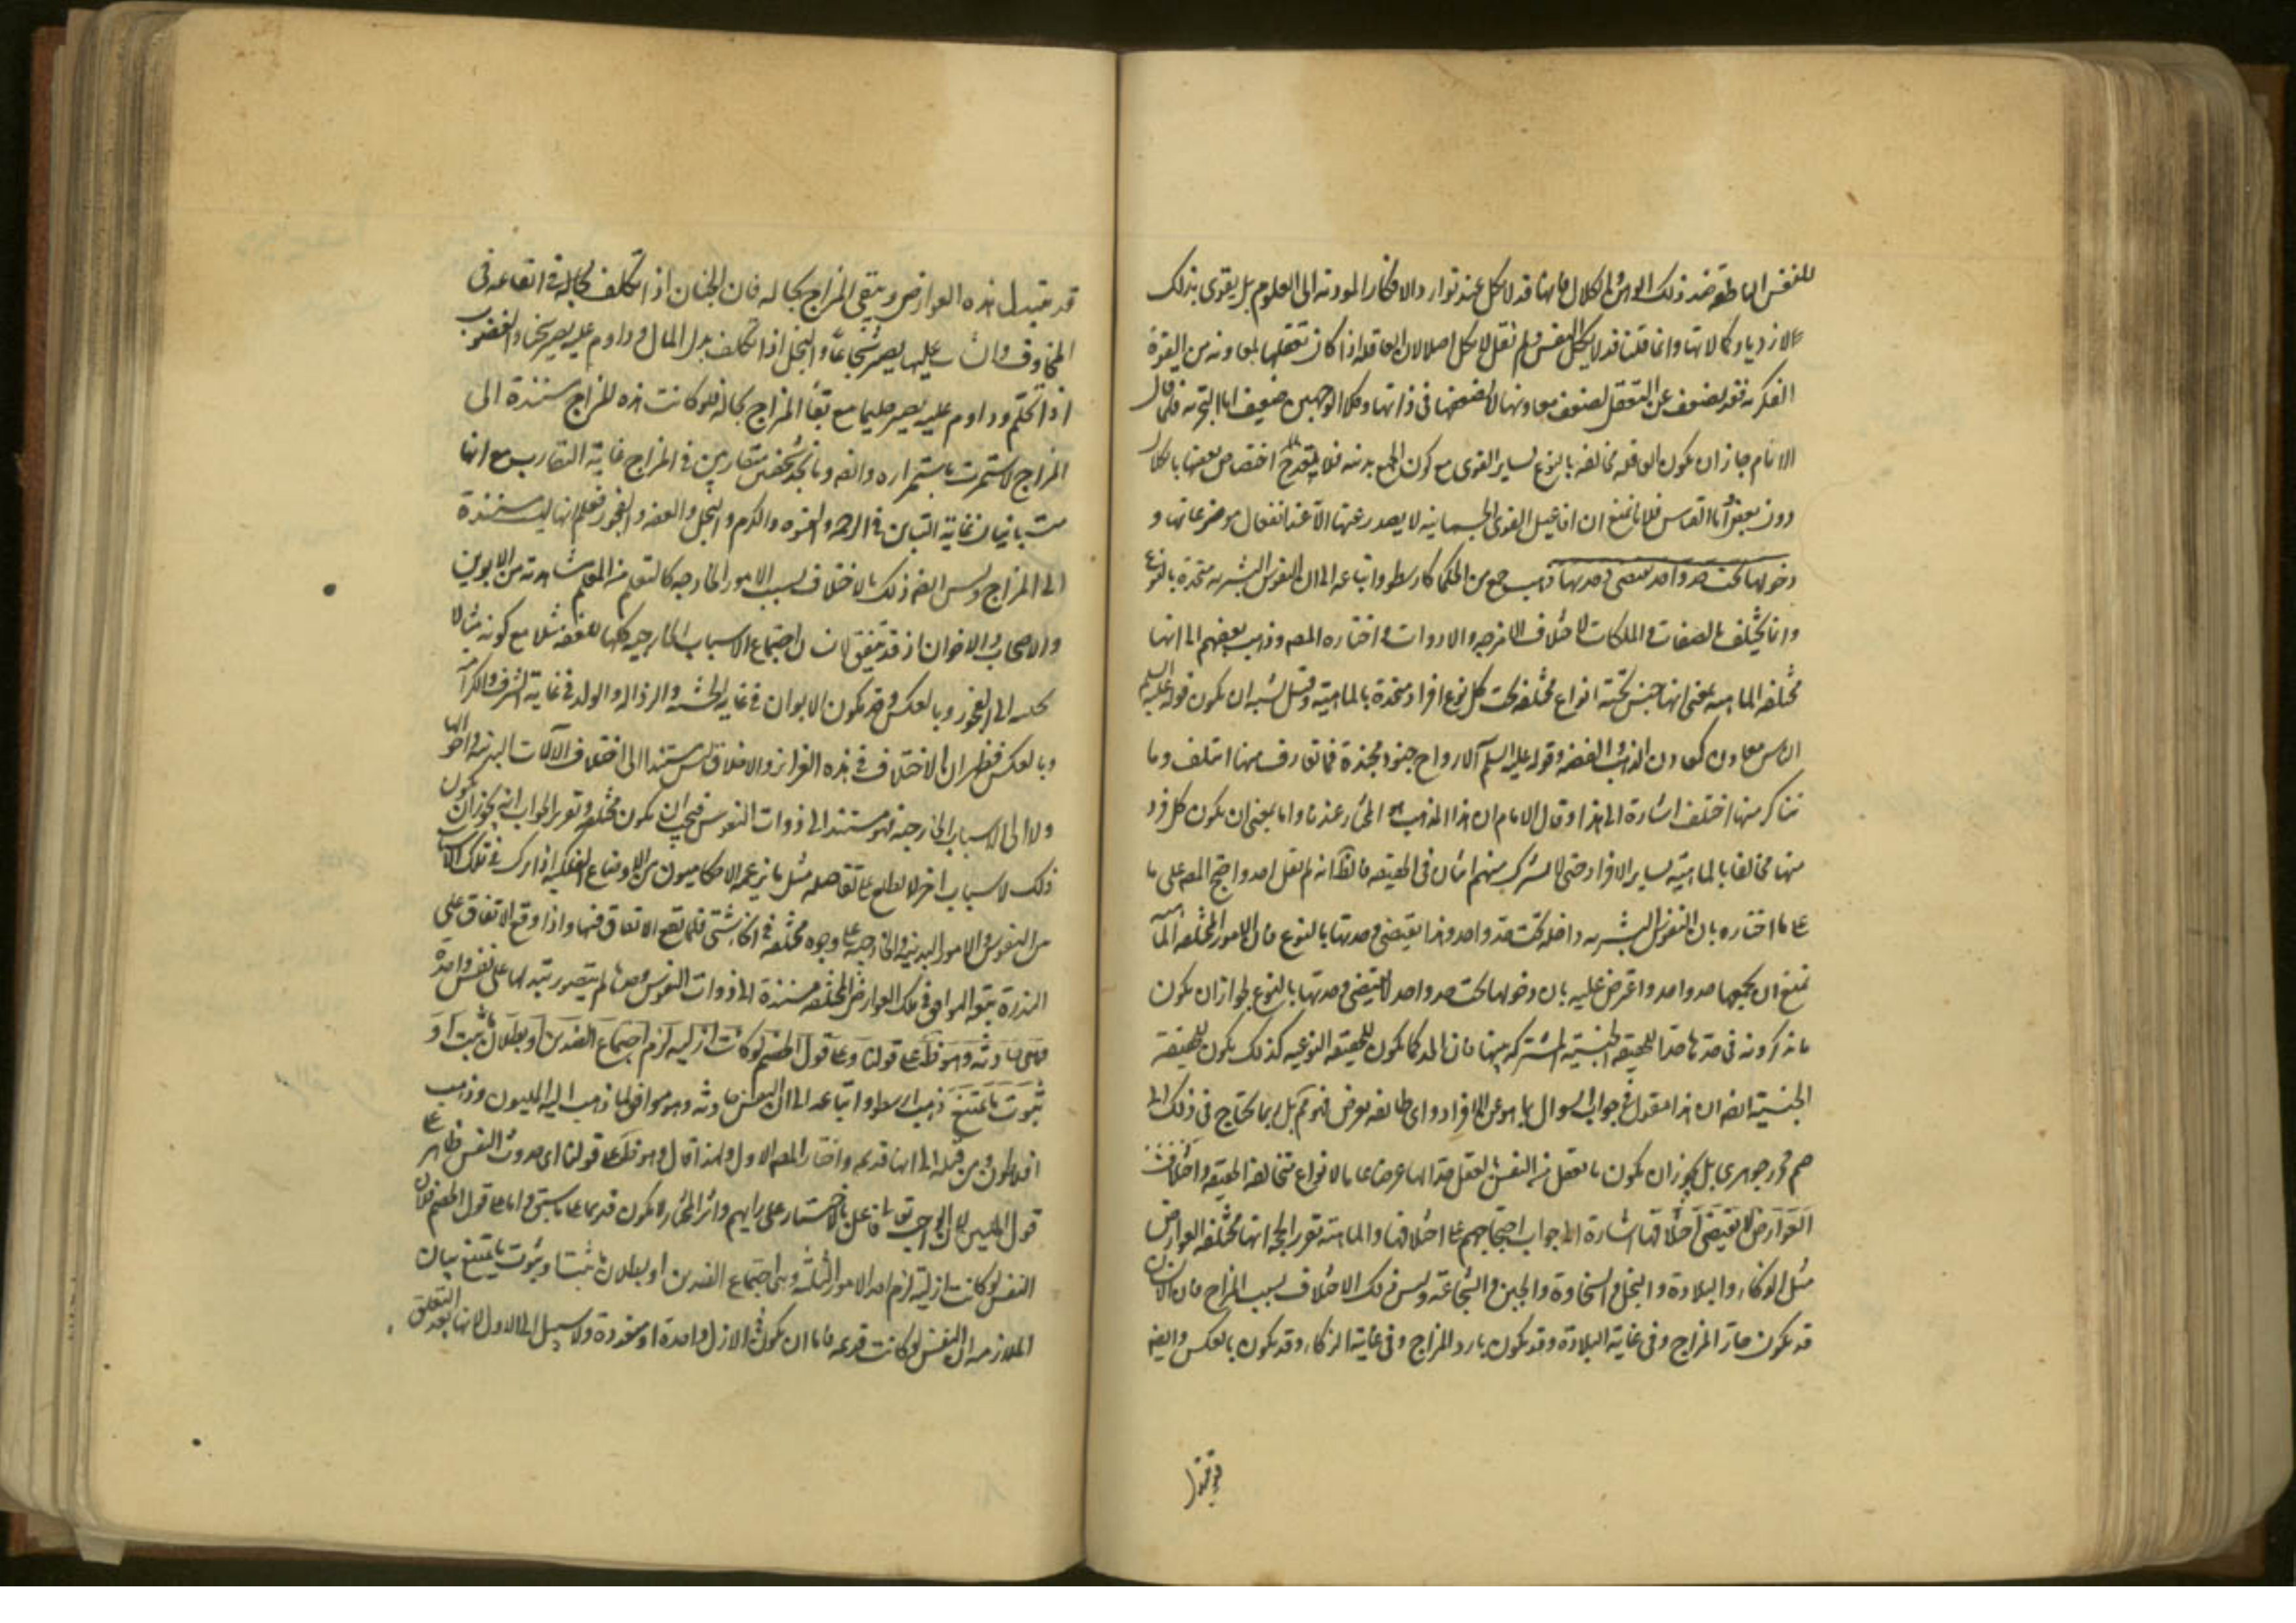 للنفس الناطقة ضد ذلك الوهن والكلال فانها قد لا تكل عند توارد الافكار المودية الى العلوم بل يقوى بذلك
على ازدياد كمالاتها وانما قلنا قد لا يكل النفس ولم نقل لا يكل اصلا لان العاقلة اذا كان تعقلها بمعاونة من القوة
الفكرية فقد يضعف عن التعقل لضعف معاونها لا لضعفها فى ذاتها وكلا الوجهين ضعيف اما التجربة فلما قال
الامام جاز ان يكون العاقلة مخالفة بالنوع لساير القوى مع كون الجميع بدنية فلا يقدح اختصاص بعضها بالكلال
دون بعض واما القياس فلانا نمنع ان افاعيل القوى الجسمانية لا يصدر عنها الا عند انفعال موضوعاتها و
دخولها تحت حد واحد يقتضى وحدتها ذهب جمع من الحكما كارسطو واتباعه الى ان النفوس البشرية متحدة بالنوع
وانما يختلف بالصفات والملكات لاختلاف الامزجة والادوات واختاره المصه وذهب بعضهم الى انها
مختلفة الماهية بمعنى انها جنس تحته انواع مختلفة تحت كل نوع افراد متحدة بالماهية وقيل يشبه ان يكون قوله عليه السلم
الناس معادن كمعادن الذهب والفضة وقوله عليه السلم الارواح جنود مجندة فما تعارف منها ائتلف وما
تناكر منها اختلف اشارة الى هذا وقال الامام ان هذا المذهب هو المختار عندنا واما بمعنى ان يكون كل فرد
منها مخالفا بالماهية لساير الافراد حتى لا يشترك منهم اثنان فى الحقيقة فالظ انه لم يقل احد واحتج المصه على ما
على ما اختاره بان النفوس البشرية داخلة تحت حد واحد وهذا يقتضى وحدتها بالنوع فان الامور المختلفة الماهية
تمنع ان يجمعها حد واحد واعترض عليه بان دخولها تحت حد واحد لا يقتضى وحدتها بالنوع لجواز ان يكون
ما تذكرونه فى حدها حدا للحقيقة الجنسية المشتركة بينها فان الحد كما يكون للحقيقة النوعية كذلك يكون للحقيقة
الجنسية ايضا ان هذا مقول فى جواب السوال بما هو عن اى افراد واى طايفة يفرض فهو ثم بل ربما يحتاج فى ذلك الى
ضم مميز جوهرى بل يجوز ان يكون ما يعقل من النفس لعقل حدا لها عرضا عاما لانواع متخالفة الحقيقة واختلاف
العوارض لا يقتضى اختلافها اشارة الى جواب احتجاجهم على اختلافها والماهية تقرير الحجة انها مختلفة العوارض
مثل الذكاء والبلادة والبخل والسخاوة والجبن والشجاعة وليس ذلك الاختلاف بسبب المزاج فان الانسان
قد يكون حار المزاج وفى غاية البلادة وقد يكون بارد المزاج وفى غاية الذكاء وقد يكون بالعكس وايضه
قد يتبدل هذه العوارض ويبقى المزاج بحاله فان الجبان اذا تكلف ايقاعه فى
المخاوف والثبات عليها يصير شجاعا والبخيل اذا تكلف بذل المال وداوم عليه يصير سخيا والغضوب
اذا تحلم وداوم عليه يصير حليما مع بقاء المزاج بحاله فلو كانت هذه المزاج مستندة الى
المزاج لاستمرت باستمراره وايضه ربما نجد شخصين متقاربين فى المزاج غاية التقارب مع انهما
متباينان غاية التباين فى الرحمة والقسوة والكرم والبخل والعفة والفجور فعلم انها ليست مستندة
الى المزاج وليس ايضه ذلك الاختلاف بسبب الامور الخارجية كالتعلم من المعلم مشاهدة من الابوين
والاصحاب والاخوان اذ قد يتفق لانسان اجتماع الاسباب الخارجية كلها للعفة مثلا مع كونه ميالا
بجبلته الى الفجور وبالعكس وقد يكون الابوان فى غاية الخسة والرذالة والولد فى غاية الشرف والكرامة
وبالعكس فظهر ان الاختلاف فى هذه الغرائز والاخلاق ليس مستندا الى اختلاف الآلات البدنية واحوالها
ولا الى الاسباب الخارجية فهو مستند الى ذوات النفوس فيجب ان يكون مختلفة وتقرير الجواب انه يجوز ان يكون
ذلك لاسباب اخر لا نطلع على تفاصيله مثل ما يزعمه الاحكاميون من الاوضاع الفلكية اذا تركبت تلك الاسباب
من النفوس والامور البدنية والخارجية على وجوه مختلفة فى انحاء شتى قلما تقع الاتفاق فيها واذا وقع الاتفاق على
الندرة يتبعه الموافق فى تلك العوارض المختلفة مستندة الى ذوات النفوس وحدها لم يتصور تبدلها على نفس واحدة
وهى حادثة وهو ظ على قولنا وعلى قول الخصم لو كانت ازلية لزم اجتماع الضدين او بطلان ما ثبت او
ثبوت ما يمتنع ذهب ارسطو واتباعه الى ان النفس حادثة وهو موافق لما ذهب اليه المليون وذهب
افلاطون ومن قبله الى انها قديمة واختار المصه الاول ولهذا قال وهو ظ على قولنا اى حدوث النفس ظاهر على
قول المليين لان الواجب تعالى فاعل بالاختيار على رايهم واثر المختار لا يكون قديما على ما سبق واما على قول الخصم فلان
النفس لو كانت ازلية لزم احد الامور الثلثة وهى اجتماع الضدين او بطلان ما ثبت او ثبوت ما يمتنع بيان
الملازمة ان النفس لو كانت قديمة فاما ان يكون فى الازل واحدة او متعددة ولا سبيل الى الاول لانها بعد التعلق